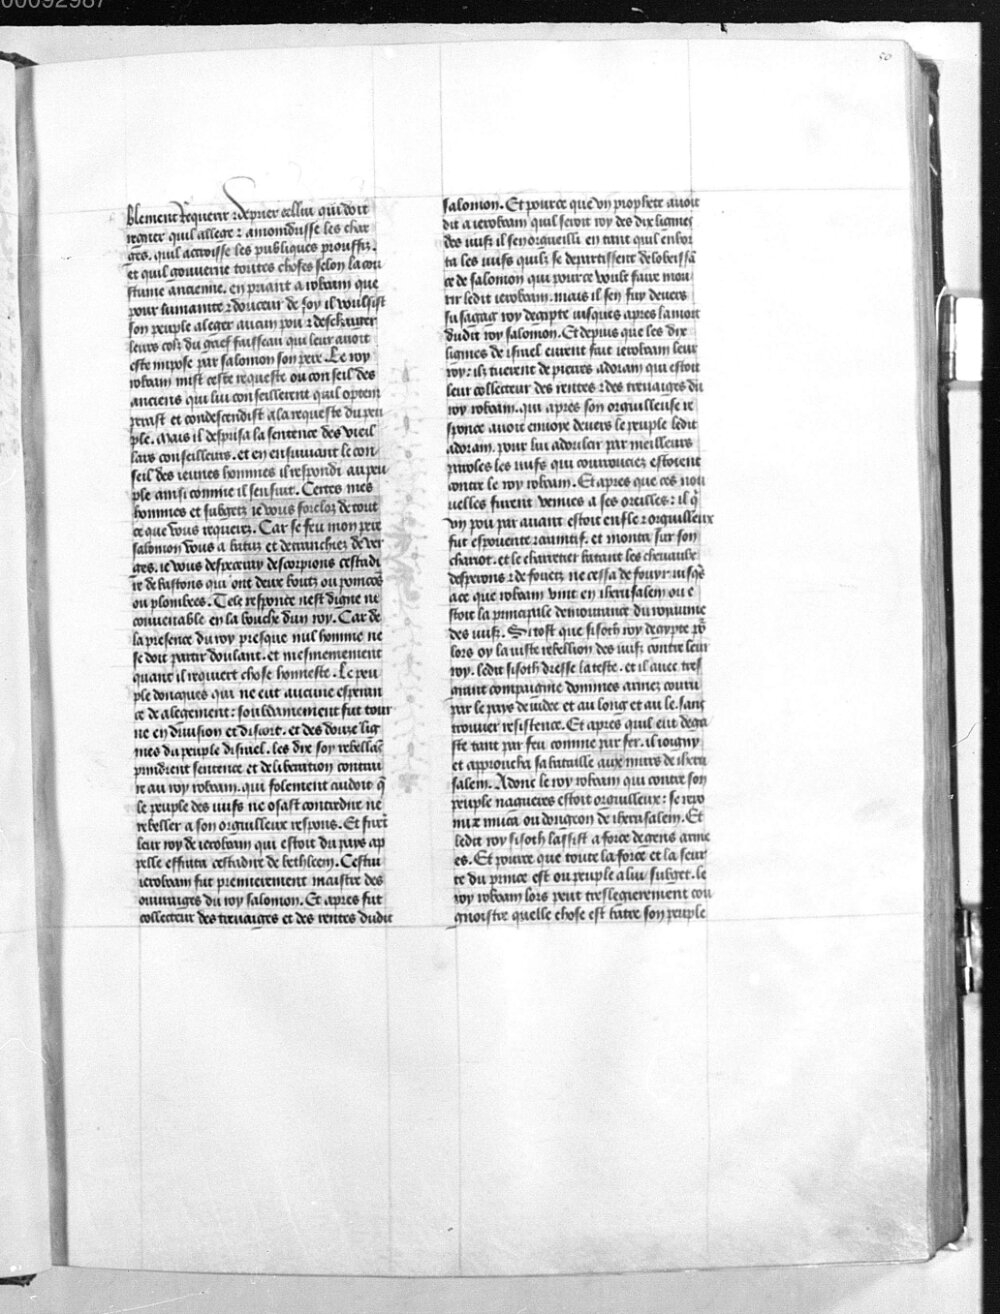 00092987
50
blement Requerir ⁊ deprier cellui qui doit
regner quil allege ⁊ amoindrisse les char
ges. quil accroisse les publiques prouffiz.
et quil gouverne toutes choses selon la cou
stume ancienne. en priant a roboam que
pour humanite ⁊ doulceur de soy il voulsist
son peuple aleger aucun pou ⁊ descharger
leurs colz du grief faisseau qui leur avoit
este impose par salomon son pere. Le roy
roboam mist ceste requeste ou conseil des
anciens qui lui conseillerent quil optem
perast et condescendist a la requeste du peu
ple. Mais il desprisa la sentence des vieil
lars conseilleurs. et en ensuivant le con
seil des jeunes hommes il respondi au peu
ple ainsi comme il sensuit. Certes mes
hommes et subgetz je vous forcloz de tout
ce que vous requerez. Car se feu mon pere
salomon vous a batuz et detranchiez de ver
ges. je vous desperceray descorpions cestadi
re de bastons qui ont deux boutz ou pomeaux
ou plombees. Tele responce nest digne ne
convenable en la bouche dun roy. Car de
la presence du roy presque nul homme ne
se doit partir doulant. et mesmement
quant il requiert chose honneste. Le peu
ple doncques qui ne eut aucune esperan
ce de alegement: soubdainement fut tour
ne en division et discort. et des douze lig
nees du peuple disrael. les dix soy rebellās
prindrent sentence et deliberation contrai
re au roy roboam. qui folement cuidoit q̄
le peuple des iuifs ne osast contredire ne
rebeller a son orguilleux respons. Et firēt
leur roy de ieroboam qui estoit du pays ap
pelle effrata cestadire de bethleem. Cestui
ieroboam fut premierement maistre des
ouvraiges du roy salomon. Et apres fut
collecteur des treuaiges et des rentes dudit
salomon. Et pource que un prophete avoit
dit a ieroboam quil seroit roy des dix lignees
des iuifz il senorgueilli en tant quil enhor
ta les iuifs quilz se departissent de lobeissā
ce de salomon qui pource voult faire mou
rir ledit ieroboam. mais il sen fuy devers
susagag roy degipte iusques apres la mort
dudit roy salomon. Et depuis que les dix
lignees de israel eurent fait ieroboam leur
roy: ilz tuerent de pierres adoram qui estoit
leur collecteur des rentes ⁊ des treuaiges du
roy roboam. qui apres son orguilleuse re
sponce avoit envoye devers le peuple ledit
adoram. pour lui adoulcir par meilleurs
paroles les iuifs qui courrouciez estoient
contre le roy roboam. Et apres que ces nou
uelles furent venues a ses oreilles: il q̄
un pou par avant estoit enfle ⁊ orguilleux
fut espouente ⁊ craintif. et monta sur son
chariot. et le charetier batant les chevaulx
desperons ⁊ de fouetz ne cessa de fouyr iusq̄s
a ce que roboam vint en iherusalem ou e
stoit la principale demourance du royaume
des iuifz. Si tost que sisoth roy degypte po͛
lors oy la iuiste rebellion des iuifz contre leur
roy. ledit sisoth dresse la teste. et il avec tres
grant compaignie dommes armez couru
par le pays de iudee et au long et au le. sans
trouver resistence. Et apres quil eut dega
ste tant par feu comme par fer. il ioigny
et approucha sa bataille aux murs de iheru
salem. Adonc le roy roboam qui contre son
peuple nagueres estoit orguilleux: se repo
nu ⁊ muca ou dongeon de iherusalem. Et
ledit roy sisoth lassist a force de gens arme
es. Et pource que toute la force et la seur
te du prince est ou peuple a lui subget. le
roy roboam lors peut tres legierement cou
gnoistre quelle chose est batre son peuple